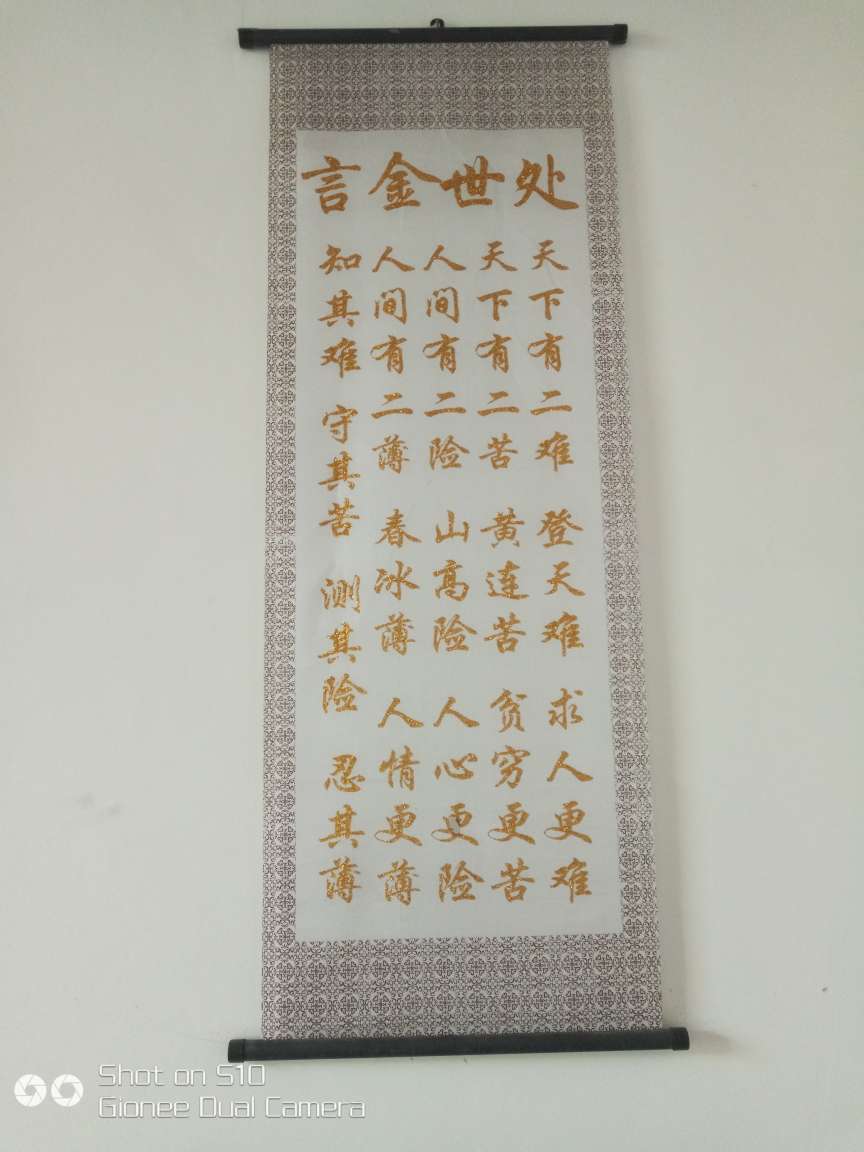 处世金言
天下有二难 登天难 求人更难
天下有二苦 黄连苦 贫穷更苦
人间有二险 山高险 人心更险
人间有二薄 春冰薄 人情更薄
知其难 守其苦 测其险 忍其薄
Shot on S10
Gionee Dual Camera